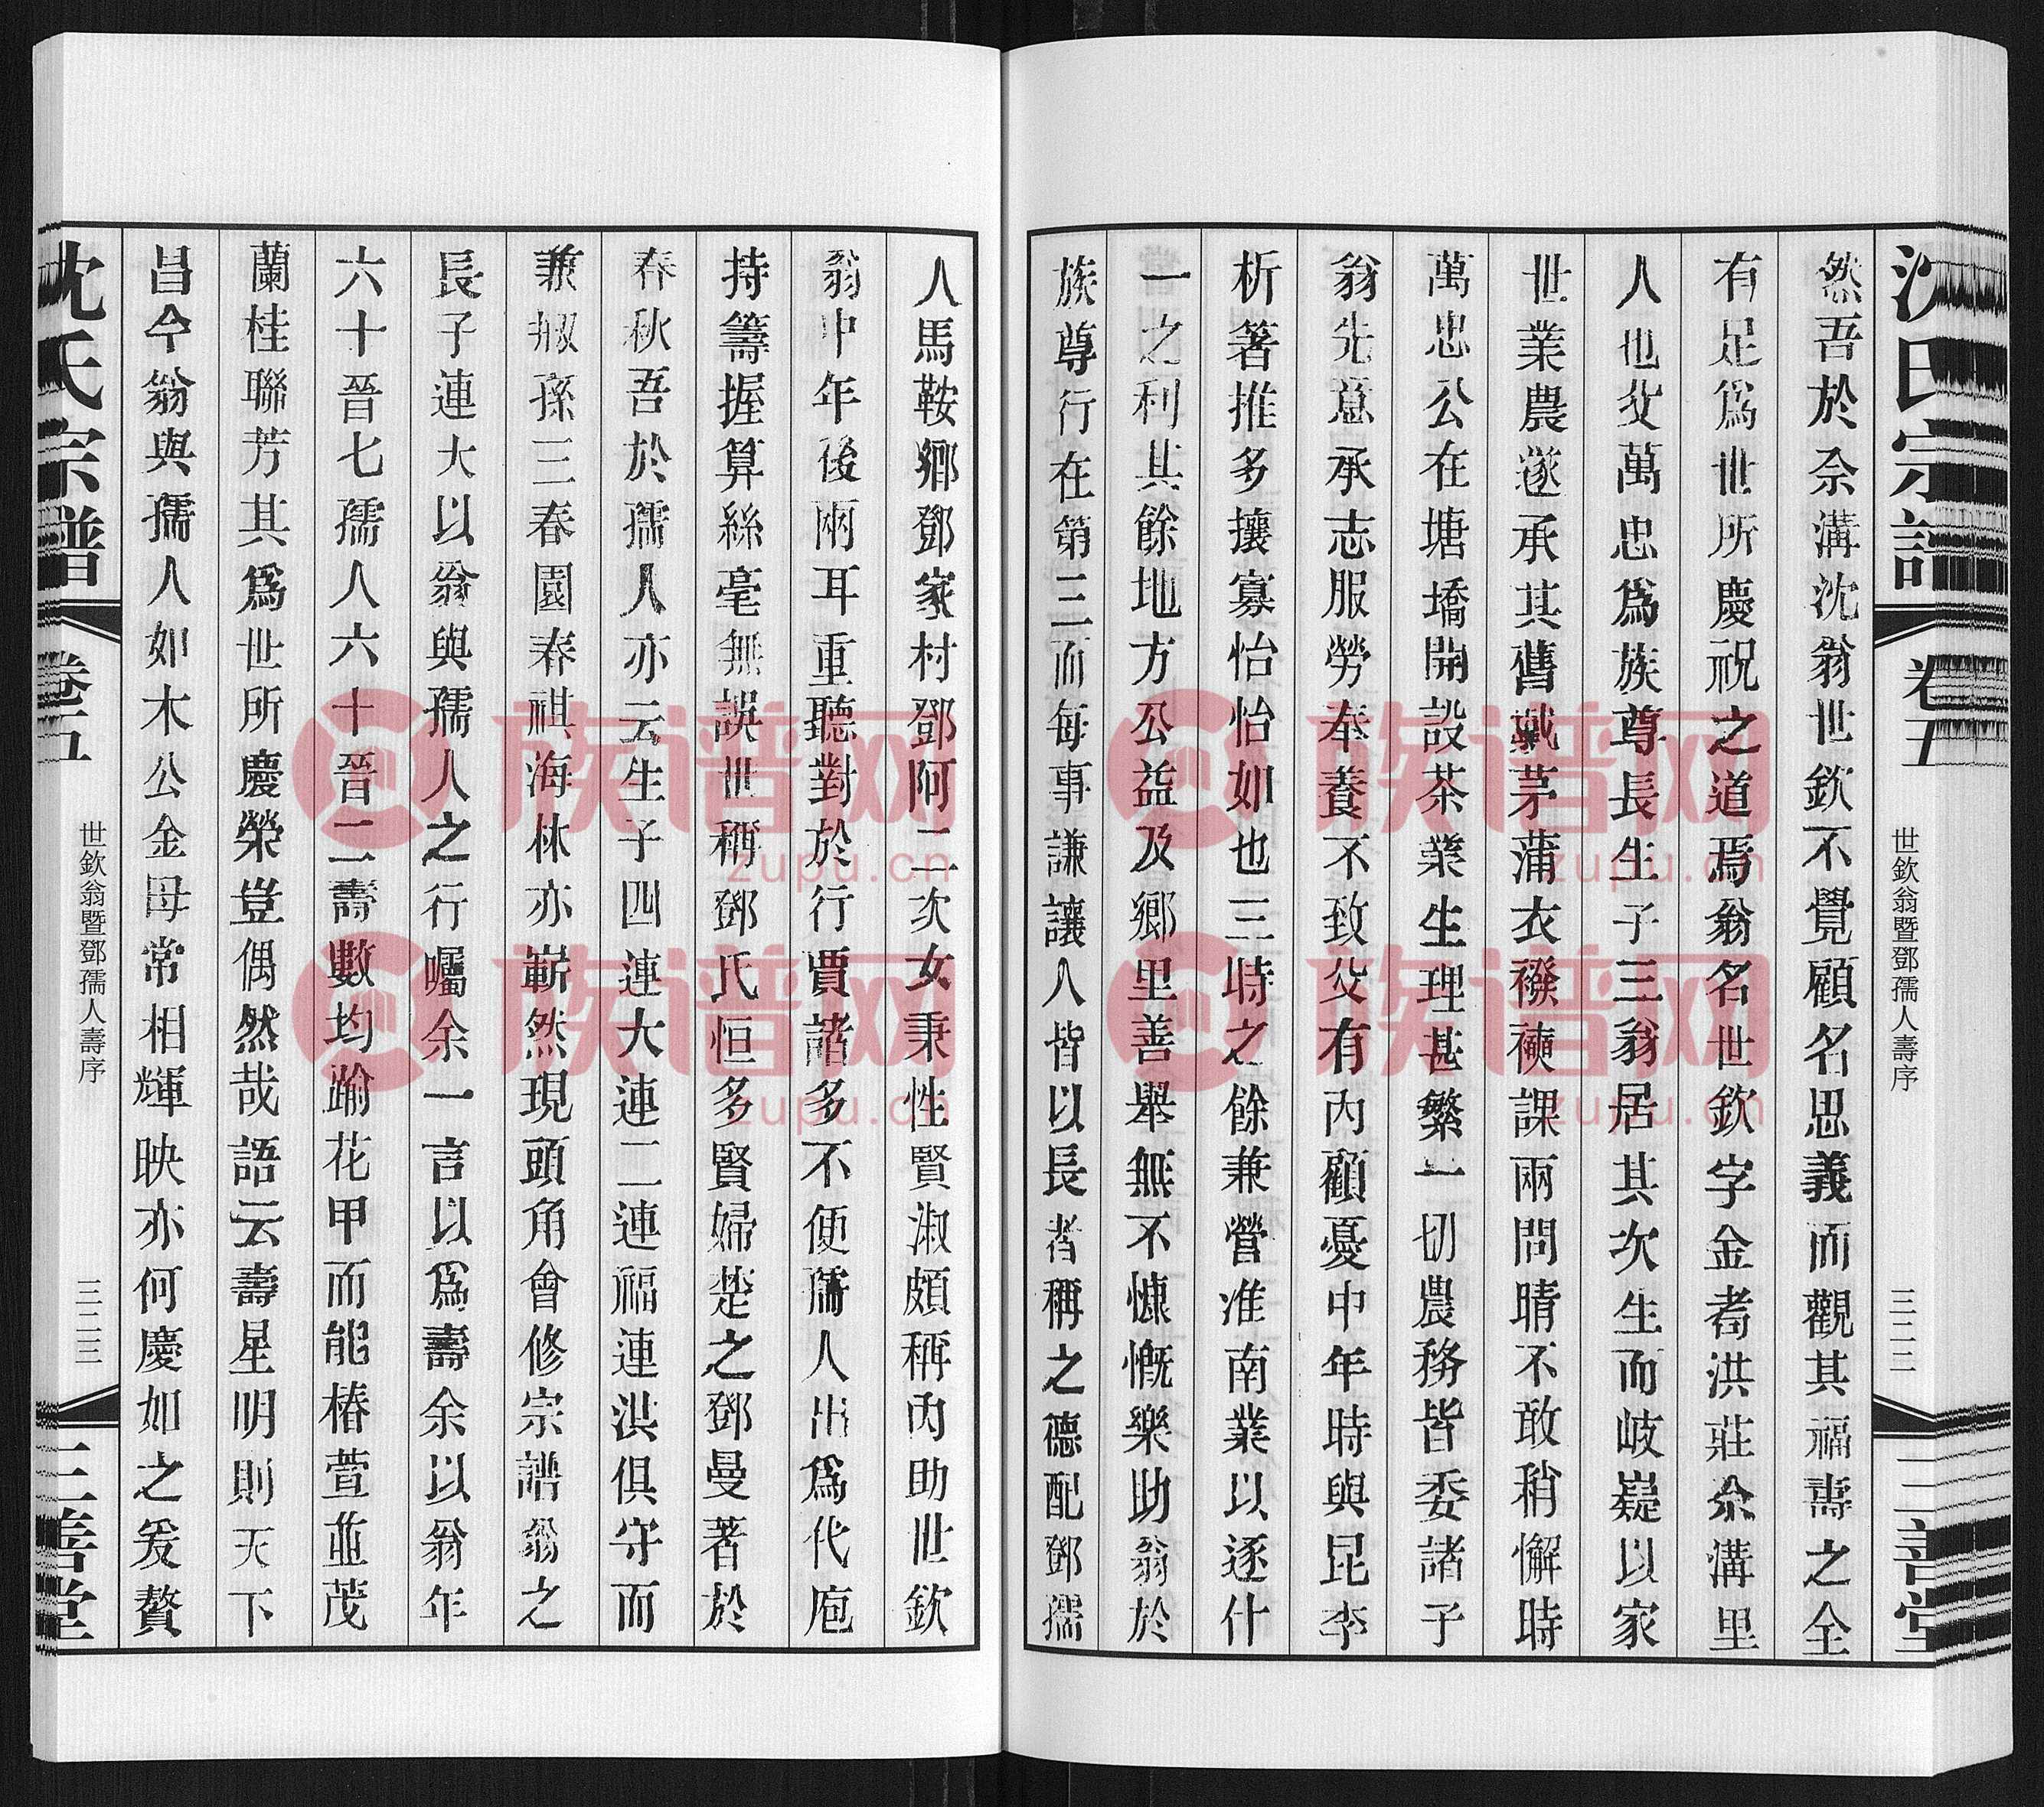 沈氏宗譜
卷五
世欽翁暨鄧孺人壽序
三二二
三善堂
然吾於佘溝沈翁世欽不覺顧名思義而觀其福壽之全
有足爲世所慶祝之道焉翁名世欽字金耈洪莊佘溝里
人也父萬忠爲族尊長生子三翁居其次生而岐嶷以家
世業農遂承其舊戴茅蒲衣襏襫課雨問晴不敢稍懈時
萬忠公在塘墧開設茶業生理甚繁一切農務皆委諸子
翁先意承志服勞奉養不致父有內顧憂中年時與昆季
析箸推多攘寡怡怡如也三時之餘兼營淮南業以逐什
一之利其餘地方公益及鄉里善舉無不慷慨樂助翁於
族尊行在第三而每事謙讓人皆以長者稱之德配鄧孺
人馬鞍鄉鄧家村鄧阿二次女秉性賢淑頗稱內助世欽
翁中年後兩耳重聽對於行賈諸多不便孺人出爲代庖
持籌握算絲毫無誤世稱鄧氏恒多賢婦楚之鄧曼著於
春秋吾於孺人亦云生子四連大連二連福連洪俱守而
兼叔孫三春園春祺海林亦嶄然現頭角會修宗譜翁之
長子連大以翁與孺人之行囑余一言以爲壽余以翁年
六十晉七孺人六十晉二壽數均踰花甲而能椿萱並茂
蘭桂聯芳其爲世所慶榮豈偶然哉語云壽星明則天下
昌今翁與孺人如木公金母常相輝映亦何慶如之爰贅
沈氏宗譜
卷五
世欽翁暨鄧孺人壽序
三二三
三善堂
族谱网
zupu.cn
族谱网
zupu.cn
族谱网
zupu.cn
族谱网
zupu.cn